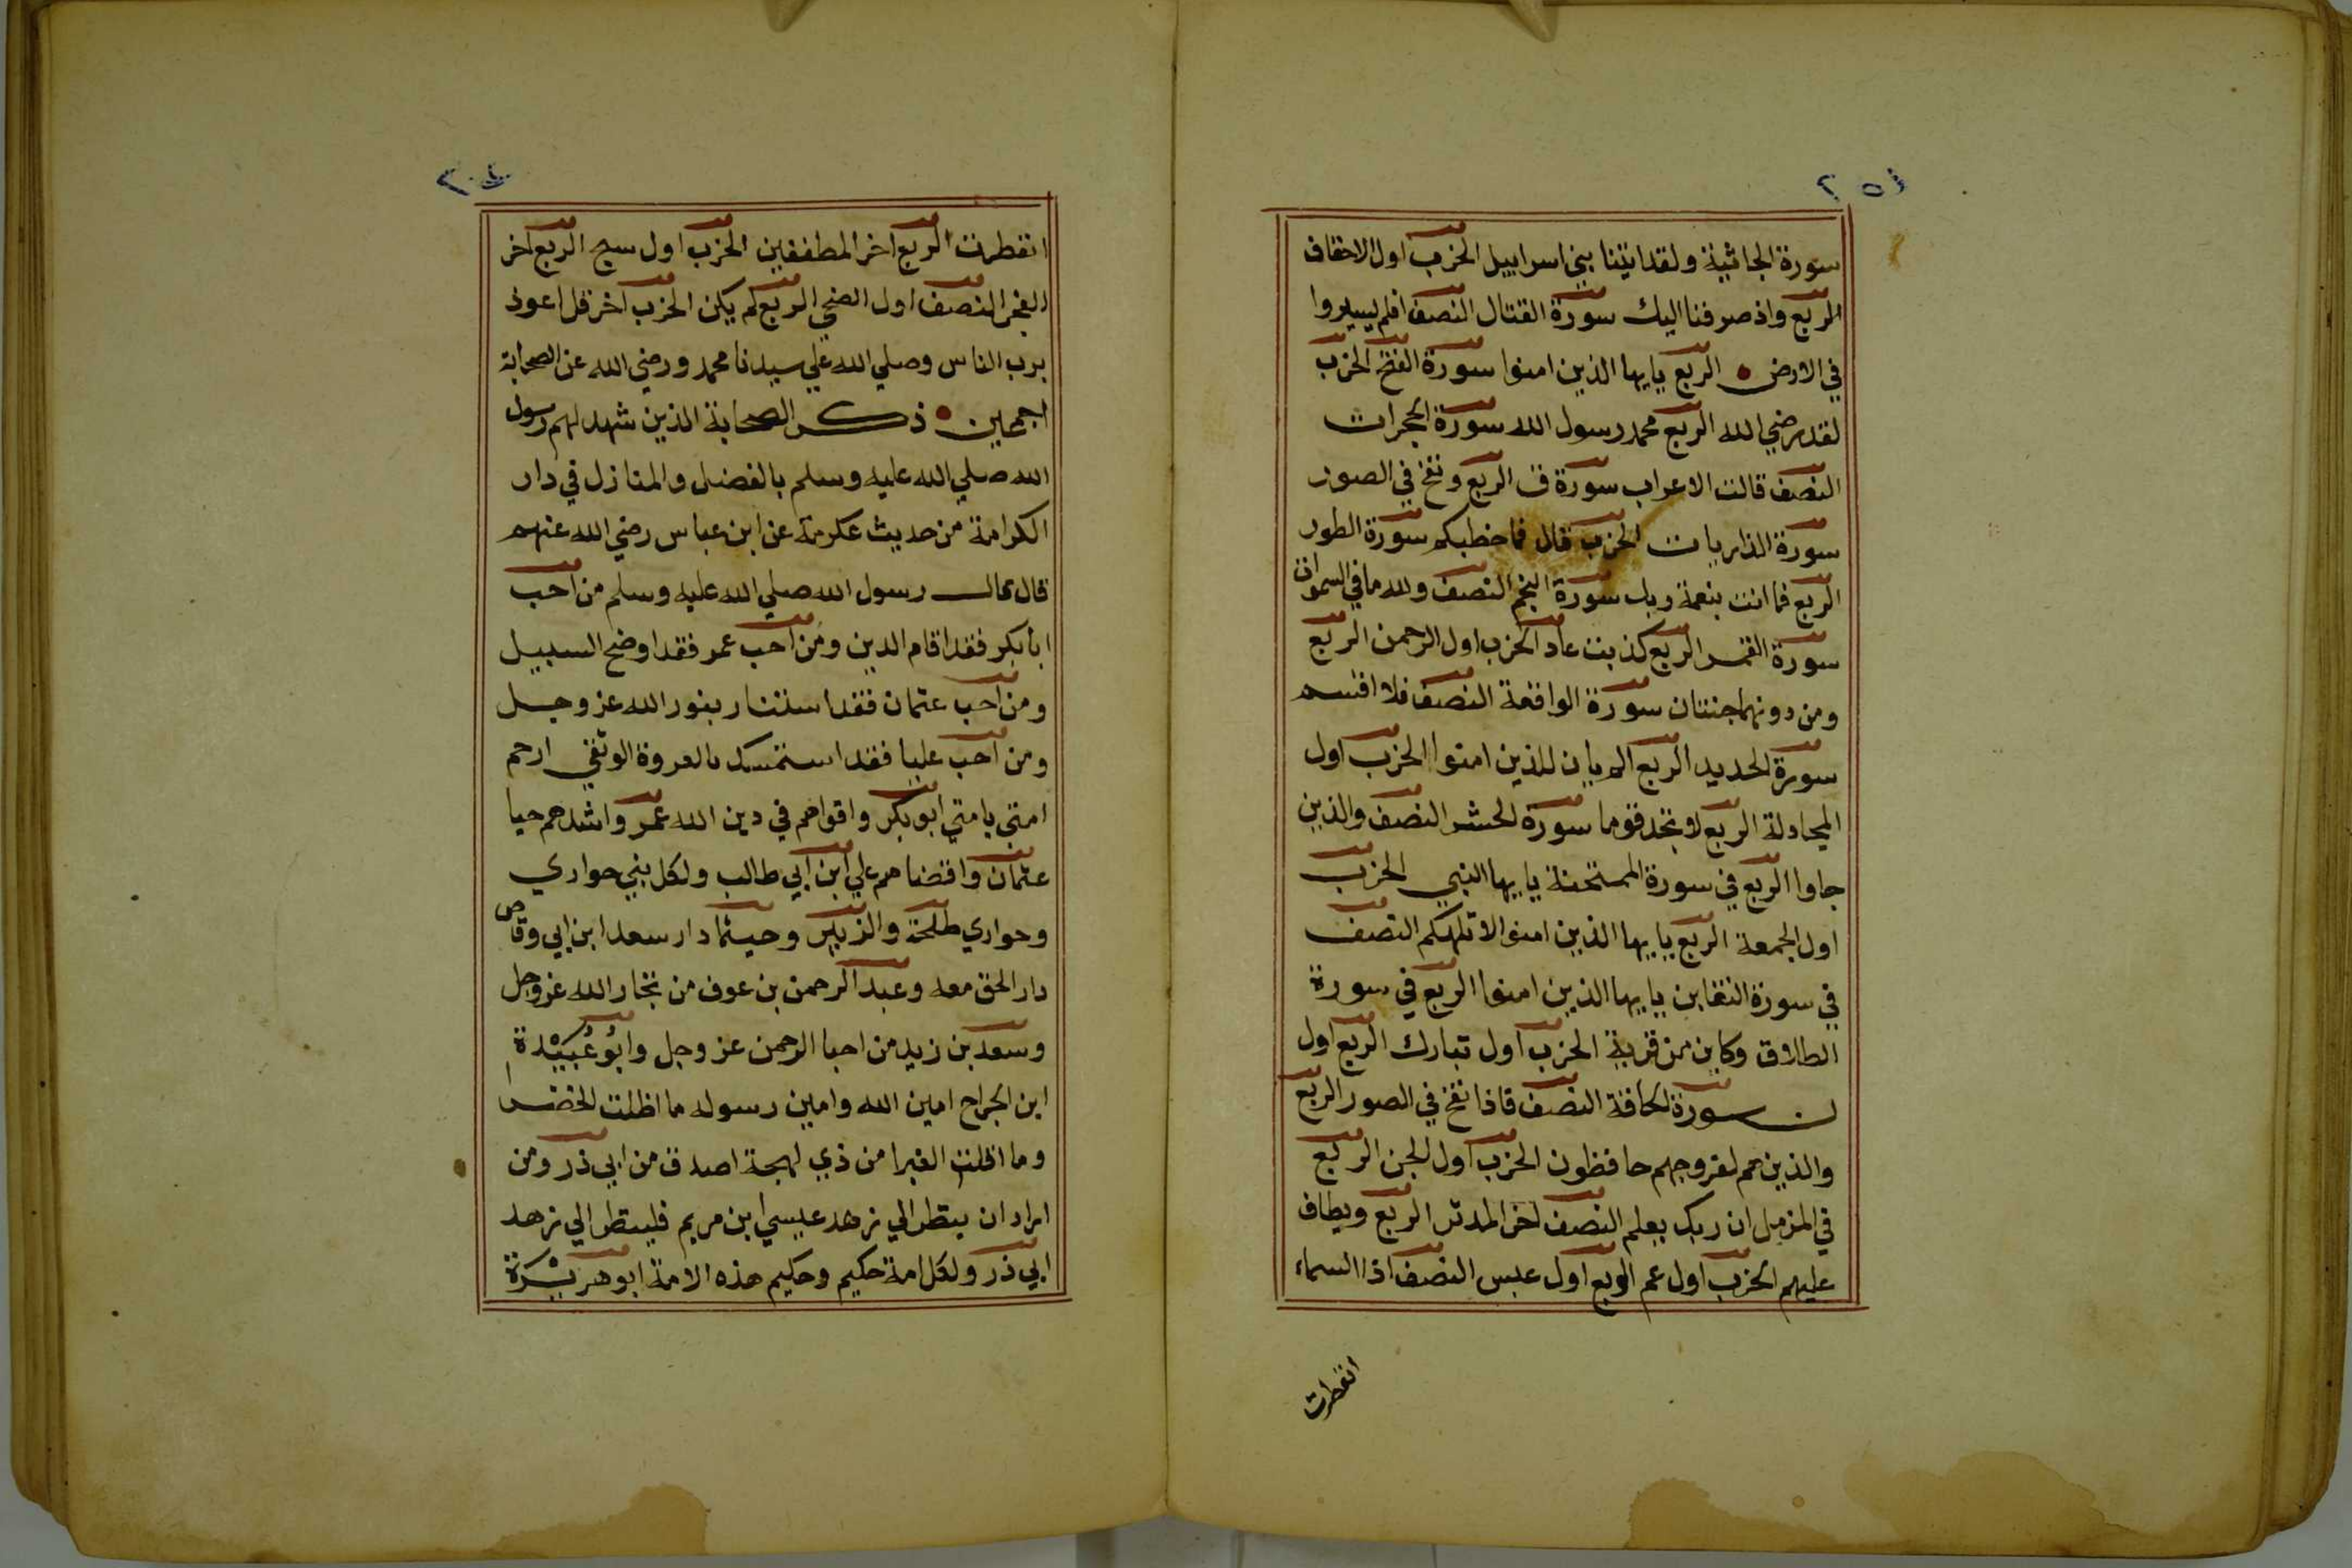 سورة الجاثية ولقد اتينا بني اسراييل الحزب اول الاحقاف
الربع واذ صرفنا اليك سورة القتال النصف افلم يسيروا
في الارض الربع يايها الذين امنوا سورة الفتح الحزب
لقد رضي الله الربع محمد رسول الله سورة الحجرات
النصف قالت الاعراب سورة ق الربع ونفخ في الصور
سورة الذاريات الحزب قال فما خطبكم سورة الطور
الربع فما انت بنعمة ربك سورة النجم النصف ولله ما في السموات
سورة القمر الربع كذبت عاد الحزب اول الرحمن الربع
ومن دونهما جنتان سورة الواقعة النصف فلا اقسم
سورة الحديد الربع الم يان للذين امنوا الحزب اول
المجادلة الربع لا تجد قوما سورة الحشر النصف والذين
جاوا الربع في سورة الممتحنة يايها النبي الحزب
اول الجمعة الربع يايها الذين امنوا لا تلهكم النصف
في سورة التغابن يايها الذين امنوا الربع في سورة
الطلاق وكاين من قرية الحزب اول تبارك الربع اول
ن سورة الحاقة النصف فاذا نفخ في الصور الربع
والذين هم لفروجهم حافظون الحزب اول الجن الربع
في المزمل ان ربك يعلم النصف اخر المدثر الربع ويطاف
عليهم الحزب اول عم الربع اول عبس النصف اذا السماء
انفطرت
انفطرت الربع اخر المطففين الحزب اول سبح الربع اخر
الفجر النصف اول الضحي الربع لم يكن الحزب اخر قل اعوذ
برب الناس وصلي الله علي سيدنا محمد ورضي الله عن الصحابة
اجمعين ذكر الصحابة الذين شهد لهم رسول
الله صلي الله عليه وسلم بالفضل والمنازل في دار
الكرامة من حديث عكرمة عن ابن عباس رضي الله عنهم
قال قال رسول الله صلي الله عليه وسلم من احب
ابا بكر فقد اقام الدين ومن احب عمر فقد اوضح السبيل
ومن احب عثمان فقد استنار بنور الله عز وجل
ومن احب عليا فقد استمسك بالعروة الوثقي ارحم
امتي بامتي ابو بكر واقواهم في دين الله عمر واشدهم حيا
عثمان واقضاهم علي ابن ابي طالب ولكل نبي حواري
وحواري طلحة والزبير وحيثما دار سعد ابن ابي وقاص
دار الحق معه وعبد الرحمن بن عوف من تجار الله عز وجل
وسعد بن زيد من احبا الرحمن عز وجل وابو عبيدة
ابن الجراح امين الله وامين رسوله ما اظلت الخضرا
وما اقلت الغبرا من ذي لهجة اصدق من ابي ذر ومن
اراد ان ينظر الي زهد عيسي ابن مريم فلينظر الي زهد
ابي ذر ولكل امة حكيم وحكيم هذه الامة ابو هريرة